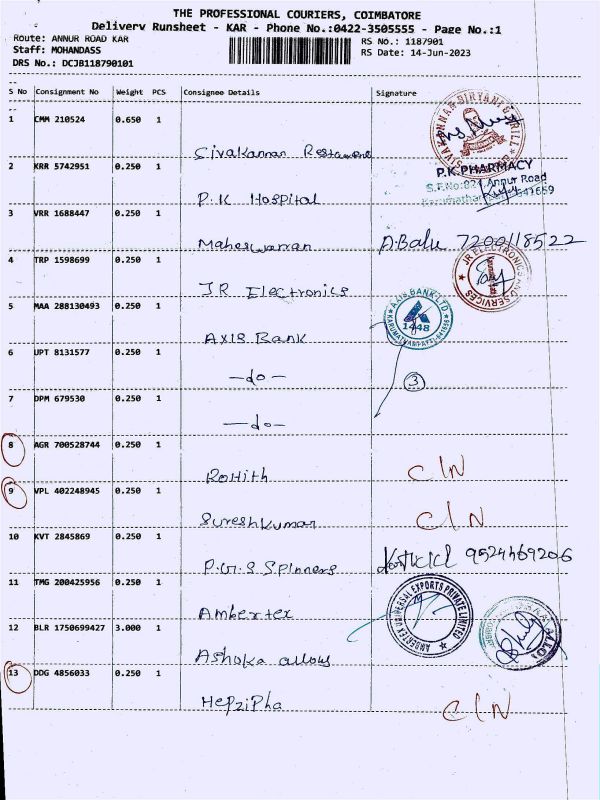 THE PROFESSIONAL COURIERS, COIMBATORE
Delivery Runsheet - KAR - Phone No.:0422-3505555 - Page No.:1
Route: ANNUR ROAD KAR
RS No.: 1187901
Staff: MOHANDASS
RS Date: 14-Jun-2023
DRS No.: DCJB118790101
S No Consignment No Weight PCS Consignee Details Signature
1 CMM 210524 0.650 1
Sivakannan Restaurent
2 KRR 5742951 0.250 1
P.K.PHARMACY
S.F.No:824, Annur Road
P.K Hospital
3 VRR 1688447 0.250 1
Maheswarran A.Balu 7200118522
4 TRP 1598699 0.250 1
JR ELECTRONICS & SERVICES
JR Electronics
5 MAA 288130493 0.250 1
AXIS BANK LTD.
1448
Axis Bank
6 UPT 8131577 0.250 1
-do- 3
7 DPM 679530 0.250 1
-do-
8 AGR 700528744 0.250 1
Rohith C/N
9 VPL 402248945 0.250 1
Sureshkumar C/N
10 KVT 2845869 0.250 1
P.G.S Spinners 9524469206
11 TMG 200425956 0.250 1
Ambertex
UNIVERSAL EXPORTS PRIVATE LIMITED
12 BLR 1750699427 3.000 1
Ashoka alloys
13 DDG 4856033 0.250 1
Hepzipha C/N